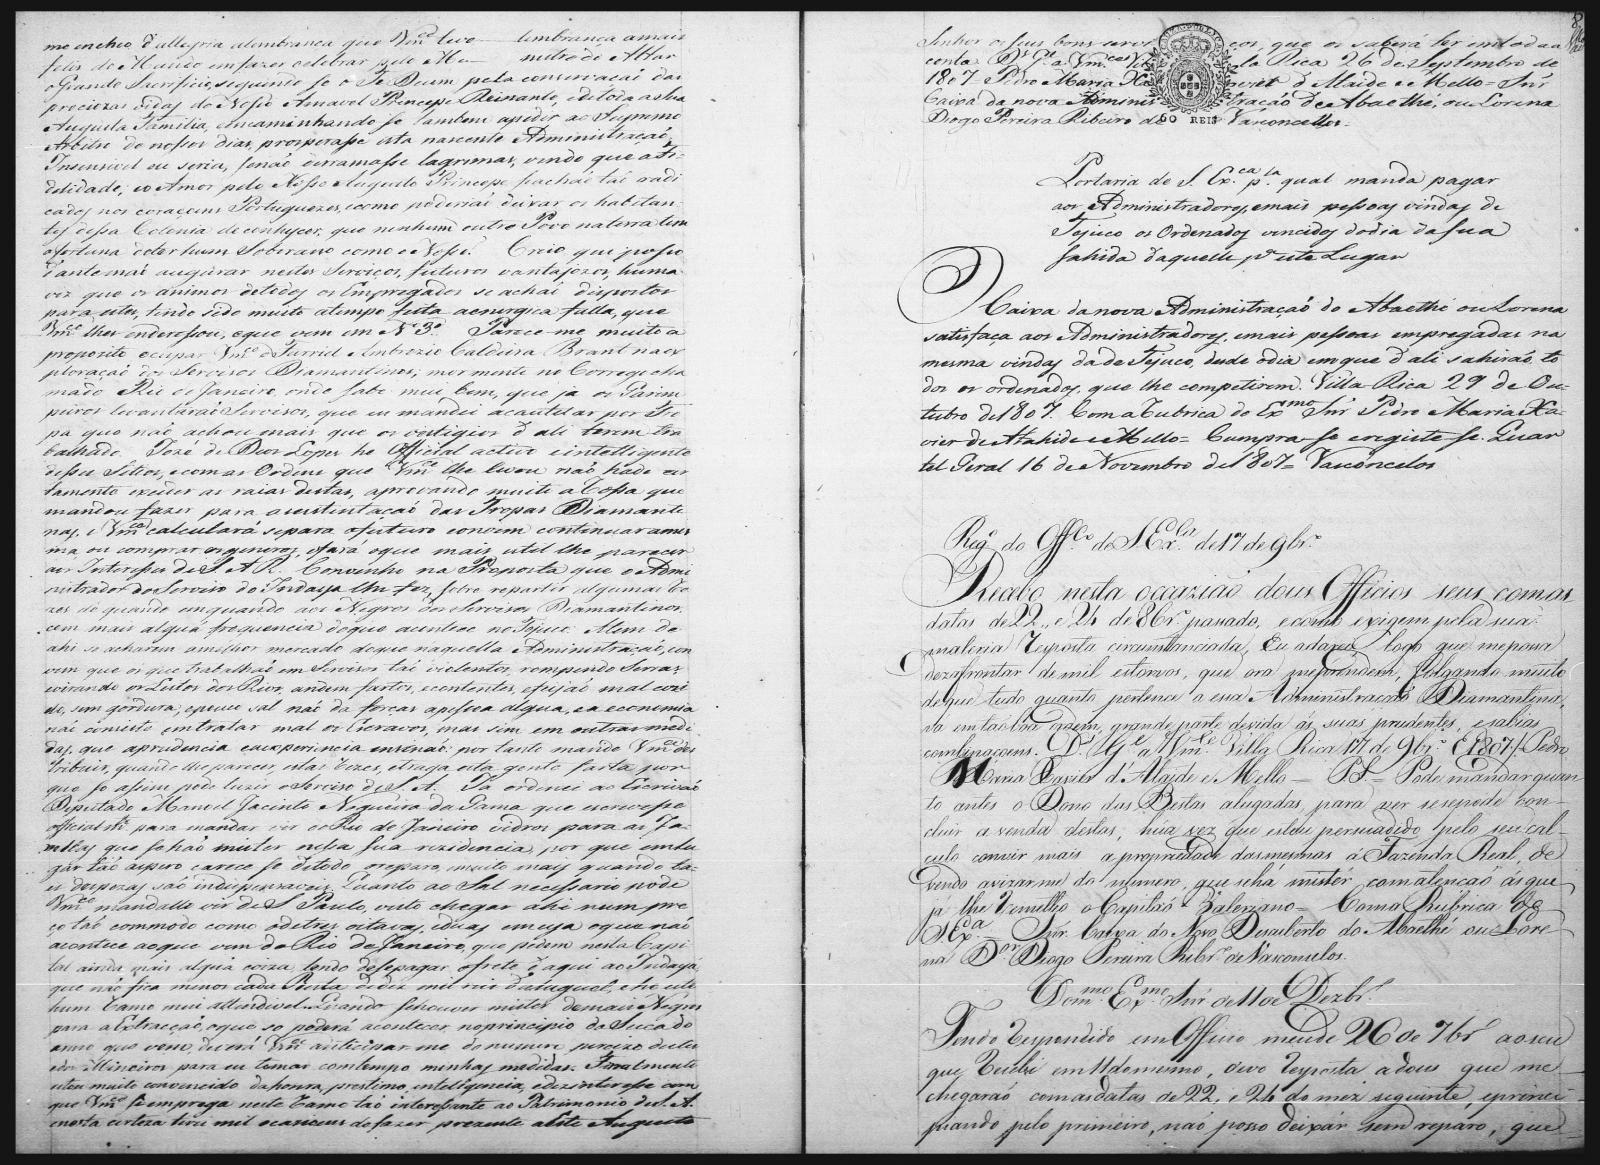 me encheo d'allegria alembranca que Vm.ce teve lembrança a mais
feliz do Mundo em fazer celebrar pelo Ministro do Altar
o Grande Sacrificio, seguindo se o Te Deum pela conservaçaõ das
preciozas vidas do Nosso Amavel Principe Reinante, e de toda a Sua
Augusta Familia, encaminhando se tambem a pedir ao Supremo
Arbitro de nossos dias, prosperasse esta nascente Administraçaõ,
Insensivel eu seria, senaõ derramasse lagrimas, vendo que a Fi-
delidade, e o Amor pelo Nosso Augusto Principe se achaõ taõ radi
cados nos coraçoens Portuguezes, como poderiaõ deixar os habitan
tes dessa Colonia de conhecer, que nenhum outro Povo na terra tem
a fortuna de ter hum Soberano como o Nosso. Creio, que posso
d'ante maõ augurar nestes Serviços, futuros vantajozos, huma
vez que os animos de todos os Empregados se achaõ dispostos
para estes, tendo sido muito a tempo feita a energica falla, que
Vm.ce lhes enderessou, e que vem em N.º 3.º Parece-me muito a
proposito ocupar Vm.ce o Furriel Ambrozio Caldeira Brant na ex
ploraçaõ dos Servisos Diamantinos, mormente no Corrego cha
mado Rio de Janeiro, onde sabe mui bem, que ja os Garim
peiros levantaraõ Servisos, que eu mandei acautelar por Tro
pa que naõ achou mais que os vestigios d'ali terem tra
balhado. José de Deos Lopes he Official activo e intelligente
desses Sitios, e com as Ordens que Vm.ce lhe levou naõ hade cer
tamente exceder as raias destas, aprovando muito a Rossa que
mandou fazer para a sustentacaõ das Tropas Diamanti
nas, e Vm.ce calculará se para o futuro convem continuar a mes
ma, ou comprar os generos, e fará o que mais util lhe parecer
aos Interesses de S. A. R. Convenho na Proposta que o Admi
nistrador do Serviso do Indaya lhe fez, sobre repartir algumas Re
zes de quando em quando aos Negros dos Servisos Diamantinos,
com mais algua frequencia do que acontece no Tejuco. Alem de
ahi se acharem a melhor mercado do que naquella Administraçaõ, con
vem que os que trabalhaõ em Servisos taõ violentos, rompendo Serras,
e virando os Leitos dos Rios, andem fartos, e contentes, e feijaõ mal cozi
do, sem gordura, e pouco sal naõ da forças a pessoa algua, e a economia
naõ consiste em tratar mal os Escravos, mas sim em outras medi
das, que a prudencia e a experiencia ensinaõ: por tanto mande Vm.ce dis
tribuir, quando lhe parecer, estas Rezes, e traga esta gente farta por
que so assim pode luzir o Serviso de S. A. Ja ordenei ao Escrivaõ
Deputado Manoel Jacinto Nogueira da Gama que escrevesse
official.te para mandar vir do Rio de Janeiro vidros para as Ja-
nellas que se haõ mister nessa sua rezidencia, por que em lu
gar taõ aspero carece se de todo o reparo, muito mais quando ta
es despezas saõ indispensaveis. Quanto ao Sal necessario pode
Vm.ce mandallo vir de S. Paulo, visto chegar ahi num pre
ço taõ commodo como o de tres oitavas, e duas em cuja o que naõ
acontece ao que vem do Rio de Janeiro, que pedem nesta Capi
tal ainda mais algua coiza, tendo de se pagar o frete d'aqui ao Indayá
que naõ fica menos cada Besta de dez mil reis d'aluguel, e he este
hum Ramo mui attendivel. Quando se houver mister de mais Negros
para a Extracçaõ, o que so poderá acontecer no principio da Seca do
anno que vem, deverá Vm.ce anticipar-me do numero precizo destes
aos Mineiros para eu tomar com tempo minhas medidas. Finalmente
estou muito convencido da honra, prestimo, intelligencia, e dezinteresse com
que Vm.ce se emprega neste Ramo taõ interessante ao Patrimonio de S. A.
e nesta certeza terei mil ocasioens de fazer prezente a Este Augusto
Senhor os seus bons servicos, que os saberá ter em toda a
conta D.s G.e a Vm.ces Villa Rica 26 de Septembro de
1807 Pedro Maria Xavier d'Ataide e Mello = Snr
Caixa da nova Administraçaõ de Abaethé, ou Lorena
Diogo Pereira Ribeiro de Vasconcellos =
60 REIS
Portaria de S. Ex.ca p.la qual manda pagar
aos Administradores, e mais pessoas vindas do
Tejuco os Ordenados vencidos do dia da sua
sahida daquelle p.a este Lugar
O Caixa da nova Administraçaõ do Abaethé ou Lorena
satisfaça aos Administradores, e mais pessoas empregadas na
mesma vindas da do Tejuco, desde o dia em que d'ali sahiraõ to
dos os ordenados, que lhe competirem. Villa Rica 29 de Ou-
tubro de 1807. Com a Rubrica do Ex.mo Snr Pedro Maria Xa-
vier de Atahide e Mello = Cumpra-se e registe-se. Quar
tel Geral 16 de Novembro de 1807 = Vasconcelos
Reg.º do Off.cio de S Ex.cia de 17 de 9br.º
Recebo nesta occaziaõ dous Officios seus com as
datas de 22, e 24 de 8br.º passado, e como exigem pela sua
materia resposta circumstanciada, Eu a darei logo que me possa
dezafrontar de mil estorvos, que ora me prendem, folgando muito
de que tudo quanto pertence a essa Administracaõ Diamantina,
vá em taõ boa ordem, grande parte devida ás suas prudentes, e sabias
combinaçoens. D.s G.e a Vm.ce Villa Rica 17 de 9br.º de 1807 // Pedro
Maria Xavier d'Ataide e Mello = P.S. = Pode mandar quan
to antes o Dono das Bestas alugadas, para ver se se pode con-
cluir a venda destas, húa vez que estou persuadido pelo seu cal-
culo convir mais a propriedade das mesmas á Fazenda Real, de
vendo avizar-me do numero, que se há mister com atencaõ ás que
já lhe remetteo o Capitaõ Valeriano = Com a Rubrica de
S Ex.cia = Snr. Caixa do Novo Descuberto do Abaethé ou Lore
na D.or Diogo Pereira Ribr.º de Vasconcelos.
Do Ill.mo Ex.mo Snr de 11 de Dezbr.º
Tendo respondido em Officio meu de 26 de 7br.º ao seu
que recebi em 11 do mesmo, devo resposta a dous que me
chegaraõ com as datas de 22, e 24 do mez seguinte, e princi
piando pelo primeiro, naõ posso deixar sem reparo, que